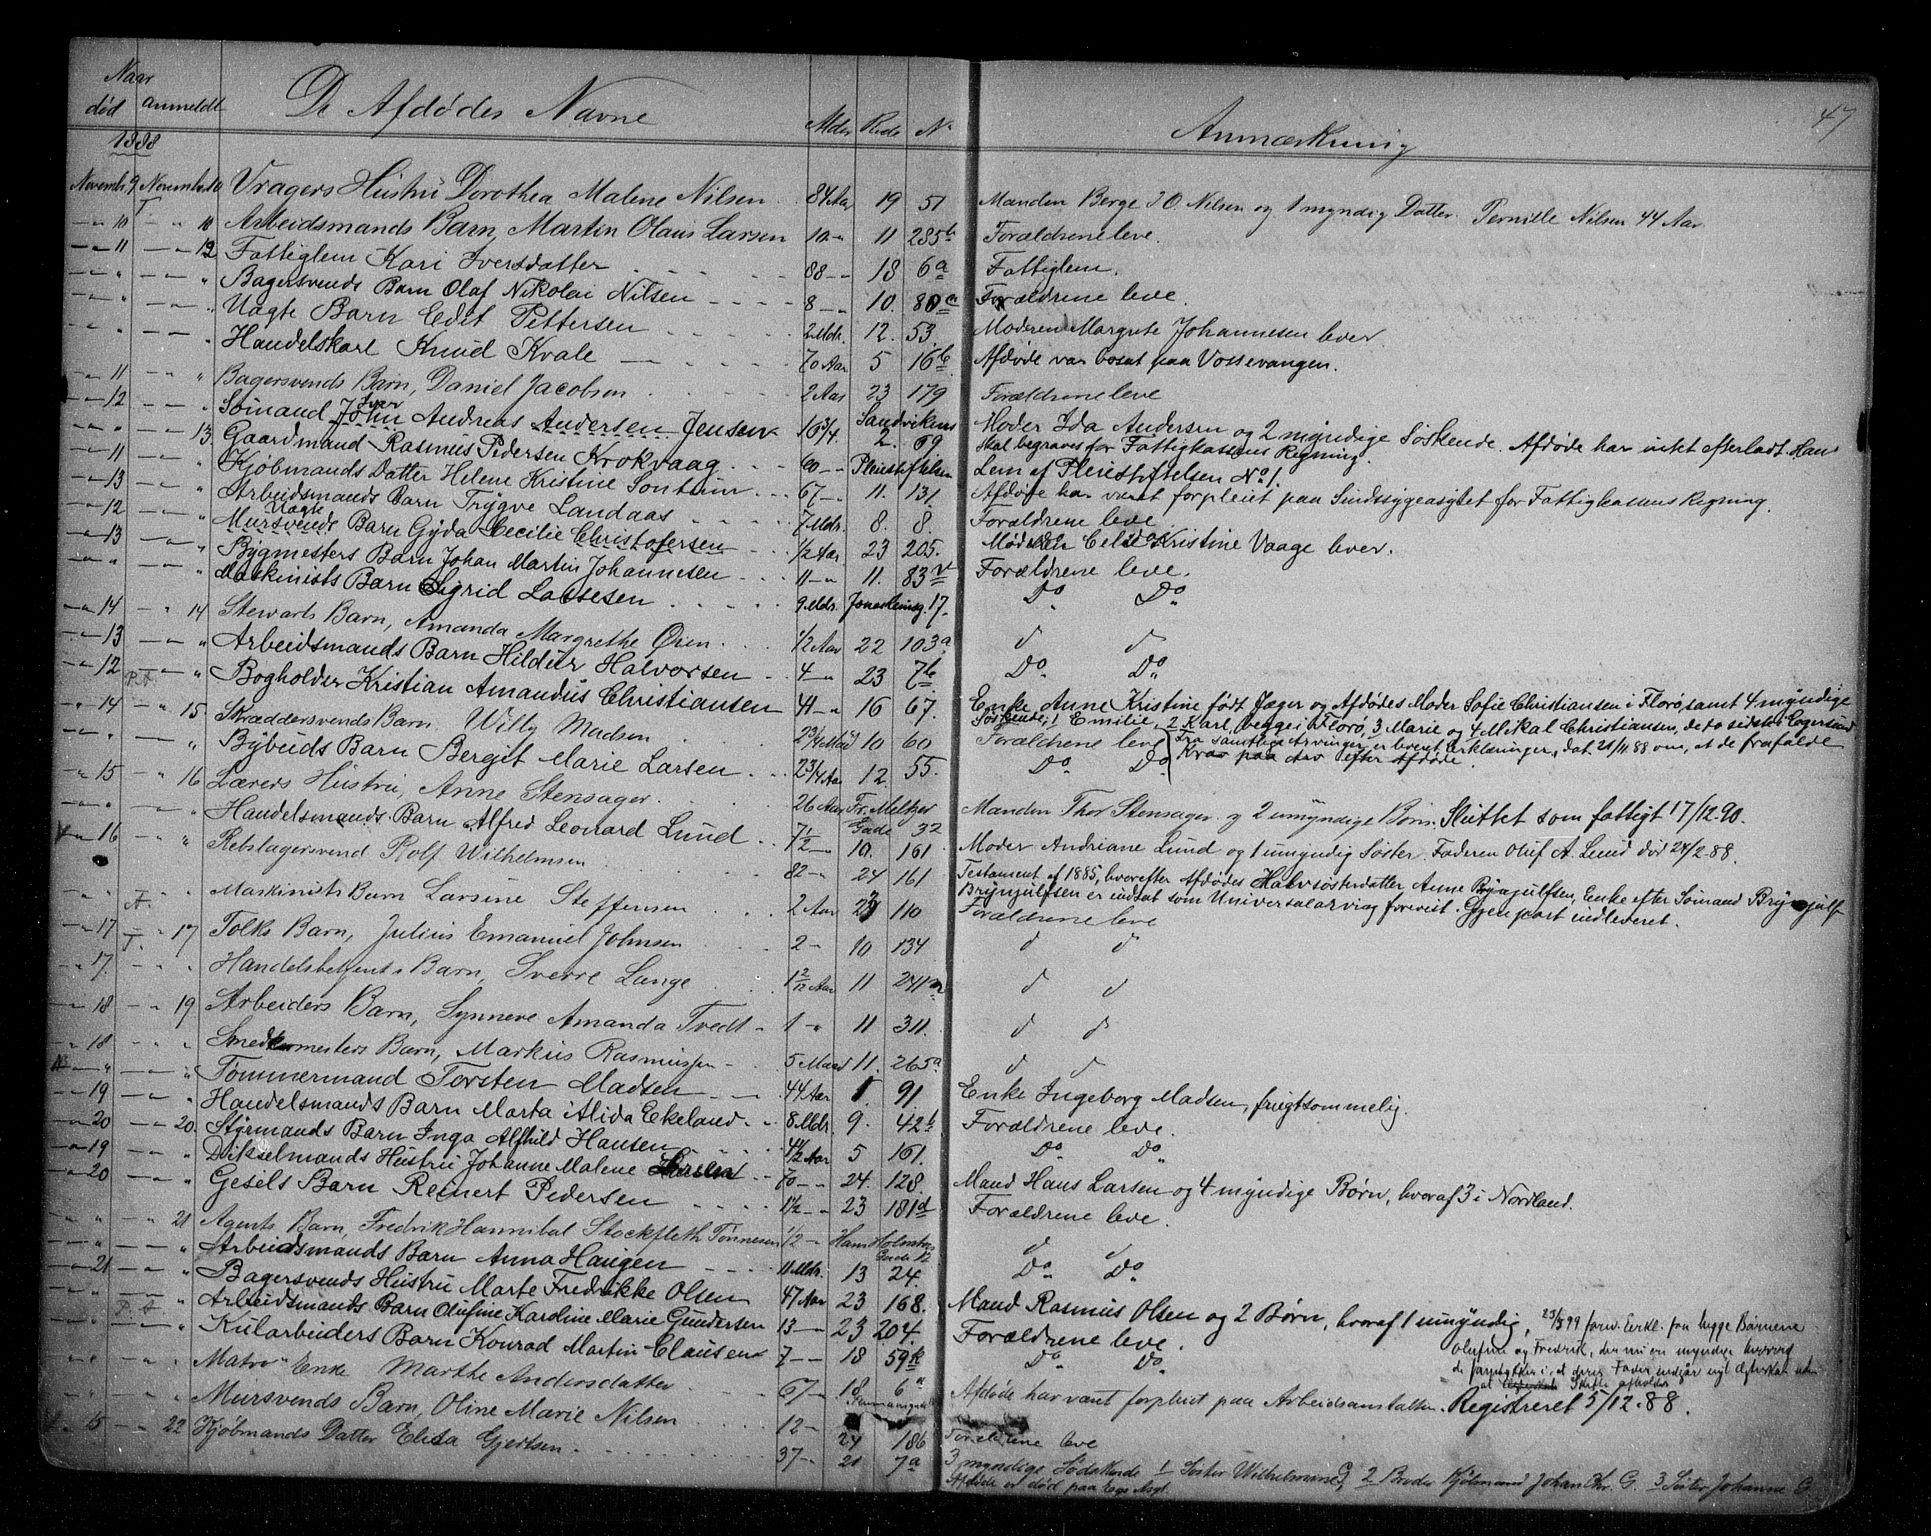 47
Naar
død anmeldt De Afdødes Navne Alder Rode No Anmærkning
1888
Novembr. 9 November 10 Vragers Hustru Dorothea Malene Nilsen 84 Aar 19 51 Manden Berge J O Nilsen og 1 myndig Datter Pernille Nilsen 44 Aar
" 10 " 10 Arbeidsmands Barn, Martin Olaus Larsen 10 " 11 285b Forældrene leve.
" 11 " 12 Fattiglem Kari Iversdatter 88 " 18 6a Fattiglem.
" " " " Bagersvends Barn Olaf Nikolai Nilsen 8 " 10. 80a Forældrene leve.
" " " " Uægte Barn Edit Pettersen 2 Mdr. 12. 53. Moderen Margrete Johannesen lever.
" " " " Handelskarl Knud Kvale 70 Aar 5 16b Afdøde var bosat paa Vossevangen.
" 11 " " Bagersvends Barn, Daniel Jacobsen 2 Aar 23 179 Forældrene leve
" 12 " " Sømand John Iver Andreas Andersen Jensen 16 3/4 Sandviken 2. 69 Moder Ida Andersen og 2 myndige Søskende. Afdøde har intet efterladt. Han
skal begraves for Fattigkassens Regning.
" " " 13. Gaardmand Rasmus Pedersen Krokvaag 60 " Pleiestiftelsen Lem af Pleiestiftelsen No 1.
" 11 " " Kjøbmands Datter Helene Kristine Sontum 67 " 11. 131. Afdøde har været forpleiet paa Sindssygeasylet for Fattigkassens Regning.
" 13 " " Arbeidsmands Barn Trygve Landaas 7 Mdr. 8. 8. Forældrene leve
" 12 " " Mursvends Uægte Barn Gyda Cecilie Christofersen 1/2 Aar 23 205. Moderen Celia Kristine Vaage lever.
" 13 " " Bygmesters Barn Johan Martin Johannesen 11 " 11. 83 Forældrene leve.
" " " " Maskinists Barn Sigrid Lassesen 9 Mdr. 17. Do Do
" 14 " 14 Stewarts Barn, Amanda Margrethe Ørien 1/2 Aar 22 103a d d
" 13 " " Arbeidsmands Barn Hildur Halvorsen 4 " 23 7b Do Do
" 12 P.A. " " Bogholder Kristian Amandus Christiansen 41 " 16 67. Enke Anne Kristine født Jæger og Afdødes Moder Sofie Christiansen i Florø samt 4 myndige
Søskende: 1 Emilie, 2 Karl, begge i Florø, 3 Marie og 4 Mikal Christiansen, de to sidste i Egersund
" 14 " 15. Skræddersvends Barn. Willy Madsen 2 3/4 10 60 Forældrene leve Fra samtlige Arvinger er leveret Erklæringer, dat. 21/11 88 om, at de frafalde
Krav paa Arv efter Afdøde.
" " " " Bybuds Barn Bergit Marie Larsen 2 3/4 Aar 12. 55. Do Do
" 15 " 16 Lærers Hustru, Anne Stensager. 26 Aar Fr. Meltzer Gade 32 Manden Thor Stensager og 2 umyndige Børn. Sluttet som fattigt 17/12.90.
" " " " Handelsmands Barn Alfred Leonard Lund 7 1/2 " 10. 161 Moder Andriane Lund og 1 umyndig Søster. Faderen Oluf A. Lund død 24/2.88.
" 16 " " Rebslagersvend Rolf Wilhelmsen 82 " 24 161 Testament af 1885, hvorefter Afdødes Halvsøsterdatter Anne Brynjulfsen, Enke efter Sømand Brynjulf
Brynjulfsen er indsat som Universalarving foreviist. Gjenpart indleveret.
" " A. " " Maskinists Barn Larsine Steffensen 2 Aar 23 110 Forældrene leve
" 17 T. " 17 Tolks Barn, Julius Emanuel Johnsen 2 " 10 134 d d
" 17. " " Handelsbetjents Barn, Sverre Lange 1 2/12 Aar 11 241 d d
" 18 " 19 Arbeiders Barn, Synneve Amanda Tvedt 1 " 11 311. d d
" 18 " " Smedmesters Barn, Markus Rasmussen 5 Maand 11. 265a d d
" " " " Tømmermand Torsten Madsen 44 Aar 1. 91 Enke Ingeborg Madsen, frugtsommelig.
" 19 " " Handelsmands Barn Marta Alida Ekeland 8 Mdr. 9. 42b Forældrene leve.
" 20 " 20. Styrmands Barn Inga Alfhild Hansen 4 1/2 Aar 5 161. Do Do
" 19 " " Dikselmands Hustru Johanne Malene Larsen 70 " 24. 128. Mand Hans Larsen og 4 myndige Børn, hvoraf 3 i Nordland.
" 20 " " Gesels Barn Reinert Pedersen 1 1/2 " 23 181d Forældrene leve.
" " " 21 Agents Barn, Fredrik Hannibal Stockfleth Tønnesen 1/2 " Hans Holmboes Gade 12 d d
" " " " Arbeidsmands Barn Anna Haugen 11 Mdr. 13 24. Do Do
" 21 " " Bagersvends Hustru Marte Fredrikke Olsen 47 Aar 23 168. Mand Rasmus Olsen og 2 Børn, hvoraf 1 umyndig,
" " P.A. " " Arbeidsmands Barn Olufine Karoline Marie Gundersen 13 " 23 204. Forældrene leve.
" " " " Kularbeiders Barn Konrad Martin Clausen 7 " 18 59 Do Do
" " " " Matrs Enke Marthe Andersdatter 67 " 18 6a Afdøde har vært forpleiet paa Arbeidsanstalten. Registreret 5/12.88.
" " " " Mursvends Barn, Oline Marie Nilsen 12 " 24 186 Forældrene leve
" 15 " 22 Kjøbmands Datter Elisa Gjertsen 37 " 21 7a 3 myndige Sødskende 1 Søster Wilhelmine G, 2 Broder Kjøbmand Johan Chr. G. 3 Søster Johanne G.
Afdøde er død paa Asyl.